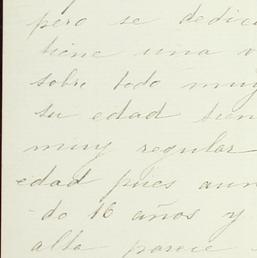 pero se dedica
tiene una v
sobre todo muy
su edad tiene
muy regular
edad pues aun
do 16 años y
alta parece